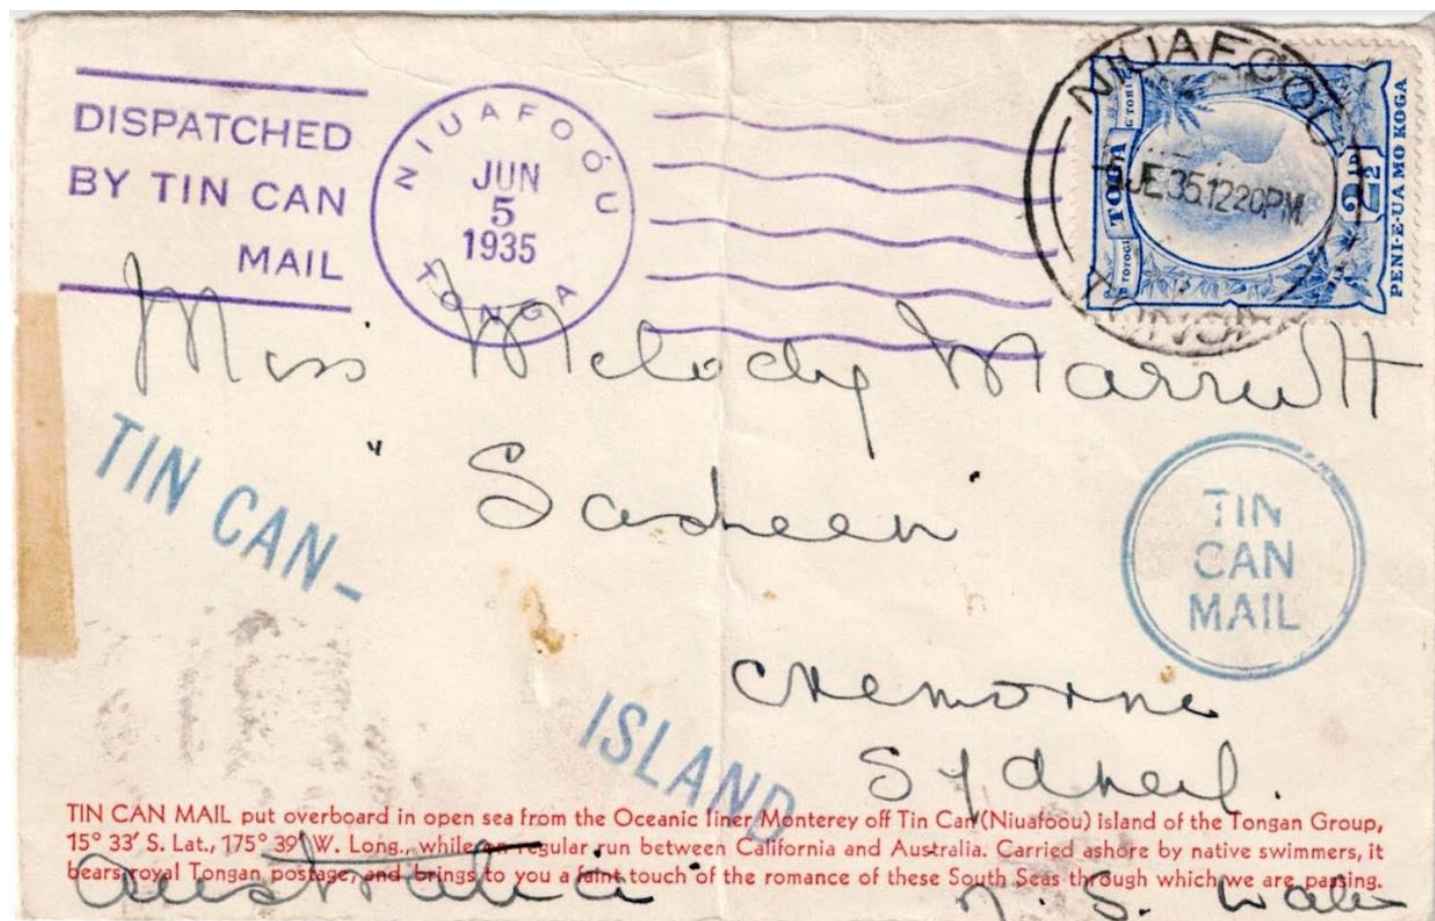 DISPATCHED
BY TIN CAN
MAIL
NIUAFOÓU
JUN
5
1935
TONGA
NIUAFOOU
JE35.1220PM
TOGA
2½D
PENI-E-UA MO KOGA
Miss Melody Marriott
TIN CAN-
ISLAND
TIN
CAN
MAIL
Cremorne
Sydney.
TIN CAN MAIL put overboard in open sea from the Oceanic liner Monterey off Tin Can (Niuafoou) island of the Tongan Group,
15° 33′ S. Lat., 175° 39′ W. Long., while on regular run between California and Australia. Carried ashore by native swimmers, it
bears royal Tongan postage, and brings to you a faint touch of the romance of these South Seas through which we are passing.
Australia N. S. Wales